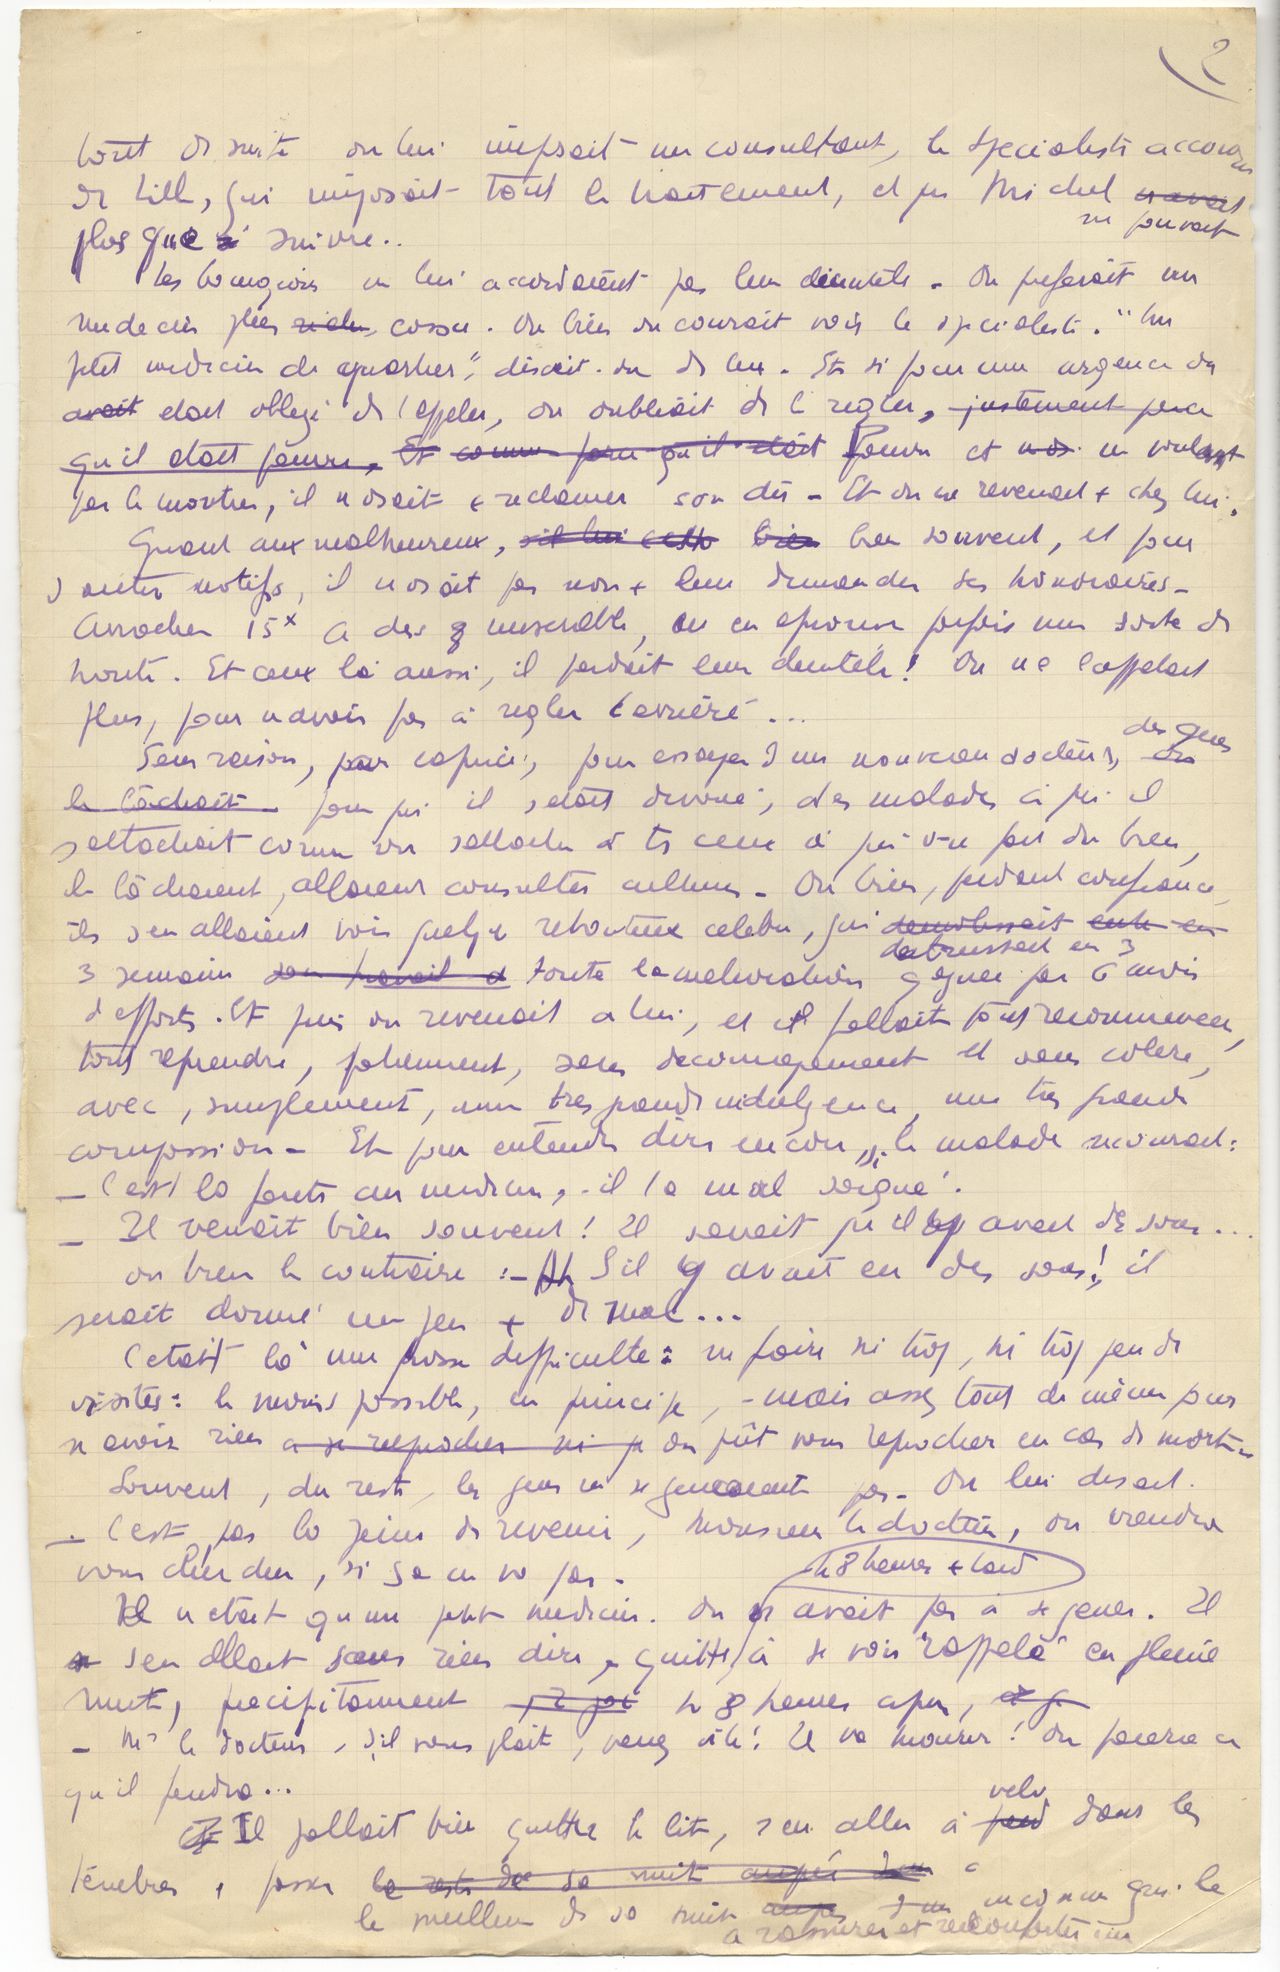 2
tout de suite on lui imposait un consultant, le specialiste accouru
de Lille, qui imposait tout le traitement, et que Michel n'avait
ne pouvait
plus que suivre..
Les bourgeois ne lui accordaient pas leur clientèle - On preferait un
medecin plus riche, cossu. Ou bien on courait voir le specialiste. "Un
petit medecin de quartier", disait-on de lui. Et si pour une urgence on
avait etait obligé de l'appeler, on oubliait de le regler, justement parce
qu'il etait pauvre. Et comme parce qu'il etait Pauvre et ne voulant
pas le montrer, il n'osait + reclamer son dû - Et on ne revenait + chez lui.
Quant aux malheureux, bien bien souvent, et pour
d'autres motifs, il n'osait pas non + leur demander ses honoraires -
Arracher 15 a des miserables, on en eprouve parfois une sorte de
honte. Et ceux là aussi, il perdait leur clientèle! On ne l'appelait
plus, pour n'avoir pas à regler l'arriéré ...
Sans raison, par caprice, pour essayer d'un nouveau docteur, des gens
le lâchait pour qui il s'etait devoué, des malades à qui il
s'attachait comme on s'attache à ts ceux à qui on fait du bien,
le lâchaient, allaient consulter ailleurs - Ou bien, perdant confiance,
ils s'en allaient voir quelque rebouteux celebre, qui demolissait en
detruisait en 3
3 semaines son travail toute l'amelioration gagnée par 6 mois
d'efforts. Et puis on revenait a lui, et il fallait tout recommencer,
tout reprendre, patiemment, sans decouragement et sans colère,
avec, simplement, une tres grande indulgence, une très grande
compassion - Et pour entendre dire encore, si le malade mourait:
- C'est la faute au medecin, - il l'a mal soigné.
- Il venait bien souvent! Il savait qu'il y avait des sous...
ou bien le contraire :- Ah S'il y avait eu des sous!, il
serait donné un peu + de mal...
C'etait là une grosse difficulte: ne faire ni trop, ni trop peu de
visites: le moins possible, en principe, - mais assez tout de même pour
n'avoir rien a se reprocher ni qu'on pût vous reprocher en cas de mort.
Souvent, du reste, les gens ne se genaient pas - On lui disait.
- C'est pas la peine de revenir, monsieur le docteur, on viendra
vous chercher, si ça ne va pas -
48 heures + tard
Il n'etait qu'un petit medecin. On n'avait pas à se gener. Il
s'en allait sans rien dire, quitte à se voir "rappelé" en pleine
nuit, precipitamment 48 heures apres,
- Mr le docteur, s'il vous plait, venez vite! Il va mourir! On paiera ce
qu'il faudra...
Il fallait bien quitter le lit, s'en aller à pied velo dans les
ténebres, passer le reste de sa nuit auprès d'un à
le meilleur de sa nuit aupres d'un inconnu qui le
a rassurer et reconforter un